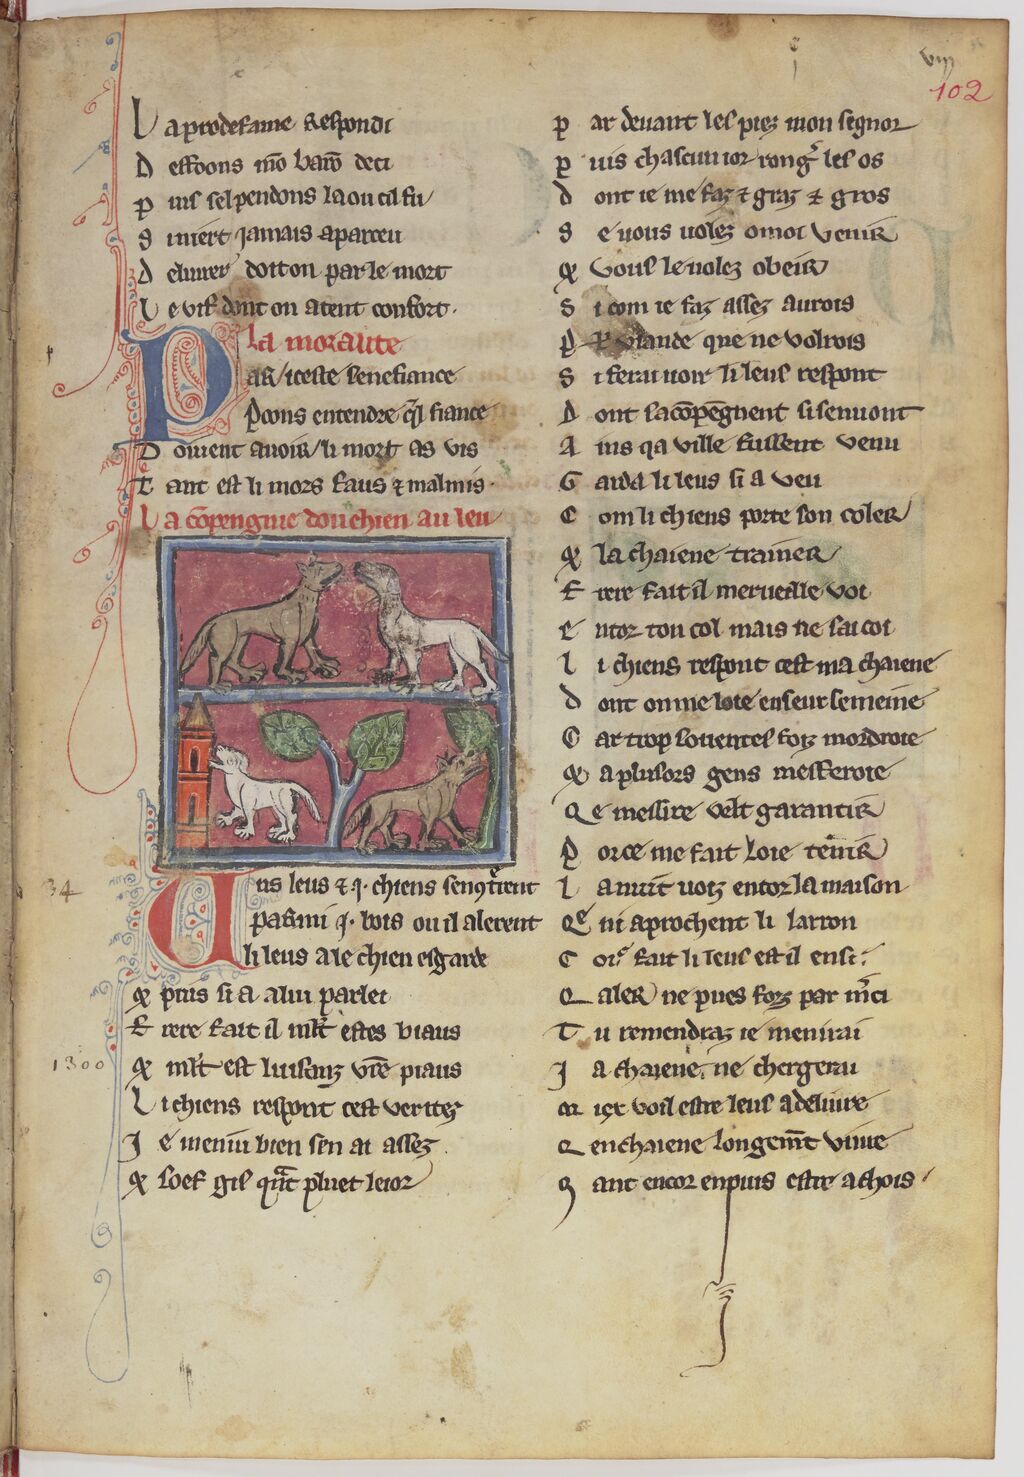 viij
102
La prodefame Respondi
D effoons mō barō deci
P uis sel pendons la ou cil fu
S i niert jamais aparceu
D el uiuer doit on par le mort
L e uif dont on atent confort.
La moralite
Par iceste senefiance
Pœons entendre q̄l fiance
D oiuent auoir li mort as vis
T ant est li mors faus & malmis.
La cōpengnie dou chien au leu
34
Uns leus & .j. chiens sen9t̄rent
Parmi .j. bois ou il alerent
li leus a le chien esgarde
⁊ puis si a a lui parlei
F rere fait il ml't estes biaus
1300
⁊ ml't est luisanz vr̄e piaus
L i chiens respont cest veritez
J e meniu bien sen ai assez
⁊ soef gis qn̄t pluet le ior
p ar deuant les piez mon segnor
p uis chascun ior rong' les os
d ont ie me faz & graz & gros
s e uous uolez o moi venir
⁊ vous le uolez obeir
S i com ie faz assez aurois
P viande que ne volrois
S i ferai uoir li leus respont
D ont sacōpēgnent si senuont
A ins qa ville fussent venu
G arda li leus si a veu
C om li chiens porte son coler
⁊ la chaiene trainer
F rere fait il merueille voi
E ntor ton col mais ne sai coi
l i chiens respont cest ma chaiene
d ont on me loie en seur semeine
C ar trop souentes foiz mordroie
⁊ a plusors gens mesferoie
Q e messire velt garantir
P orce me fait loie tenir
l a nuit uoiz entor la maison
Qe ni aprochent li larron
C or fait li leus est il ensi
Q aler ne pues fors par m̄ci
T u remendraz ie menirai
J a chaiene ni chergerai
M iex voil estre leus a deliure
Q en chaiene longemt viure
Q ant encor en puis estre a chois